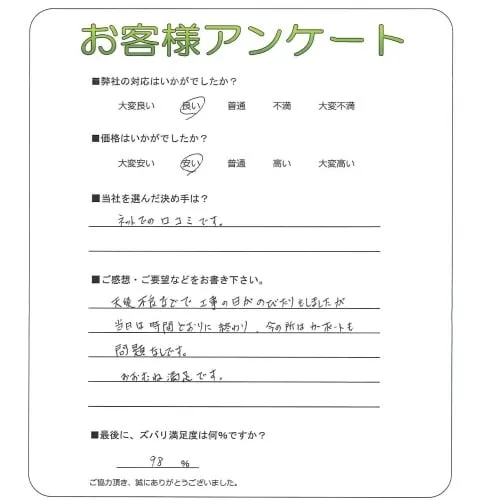 お客様アンケート
■弊社の対応はいかがでしたか？
大変良い 良い 普通 不満 大変不満
■価格はいかがでしたか？
大変安い 安い 普通 高い 大変高い
■当社を選んだ決め手は？
ネットでの口コミです。
■ご感想・ご要望などをお書き下さい。
天候不良などで工事の日がのびたりもしましたが
当日は時間どおりに終わり、今の所はカーポートも
問題なしです。
おおむね満足です。
■最後に、ズバリ満足度は何％ですか？
98 ％
ご協力頂き、誠にありがとうございました。